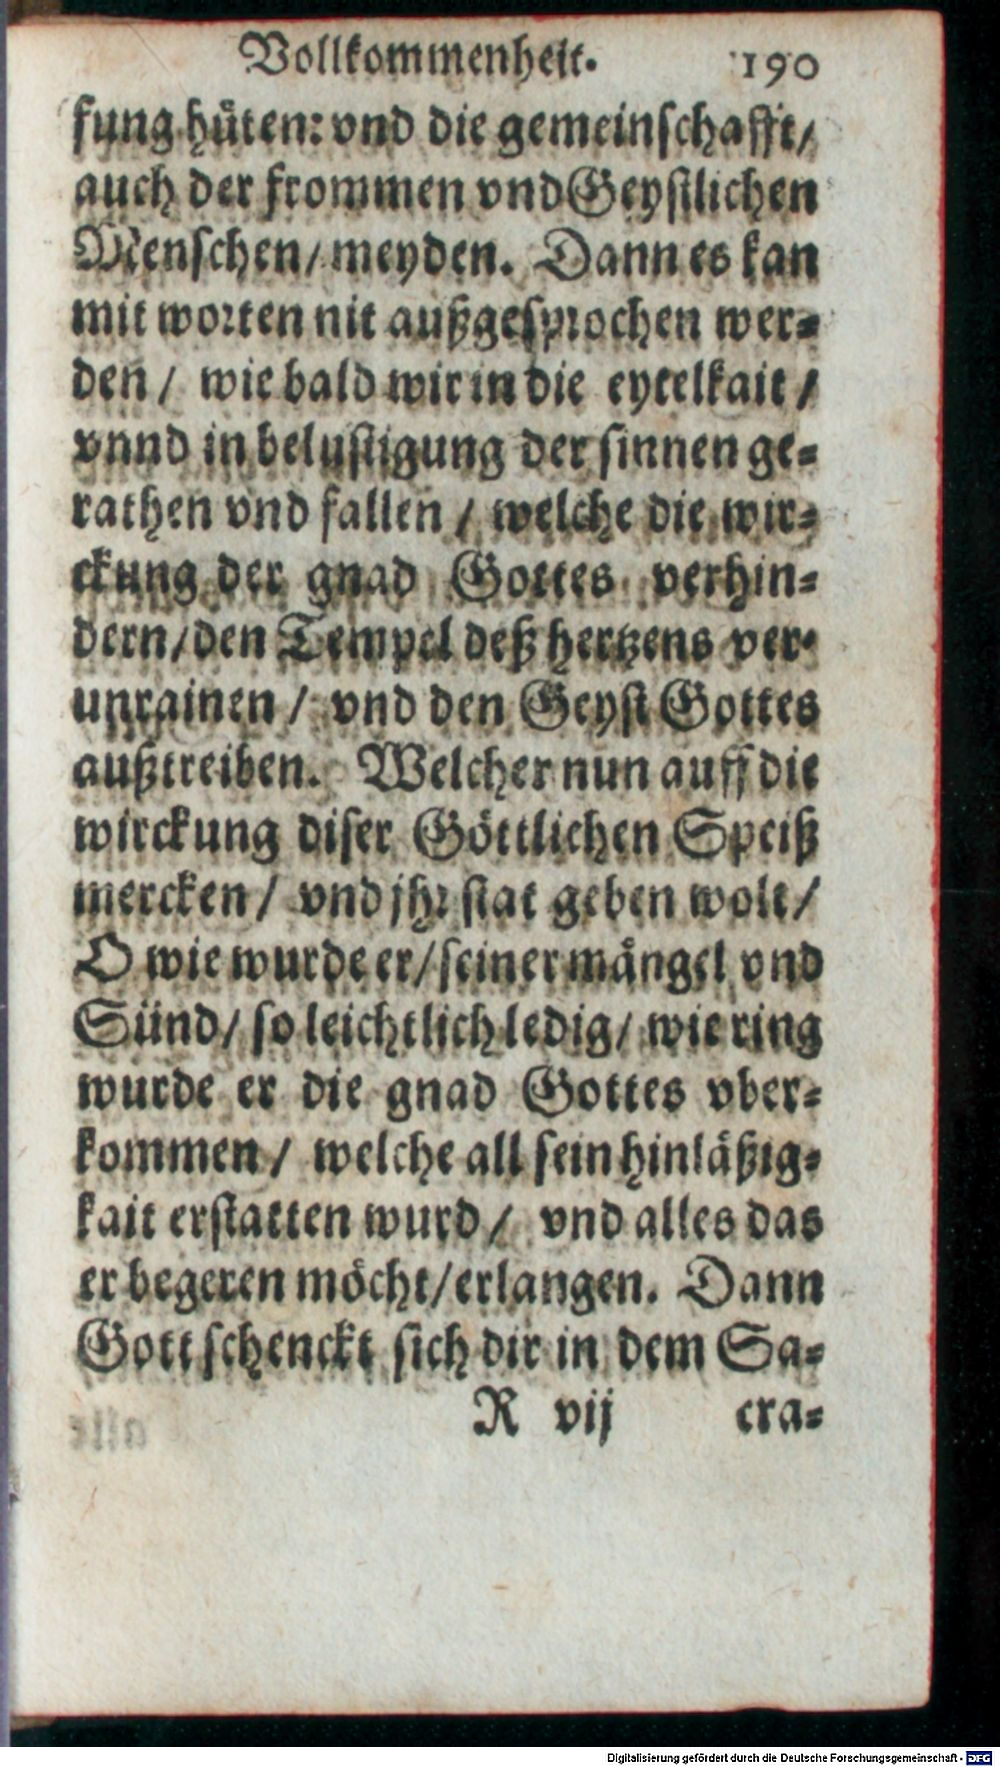 Vollkommenheit. 190
fung hüten: vnd die gemeinschafft/
auch der frommen vnd Geystlichen
Menschen/ meyden. Dann es kan
mit worten nit außgesprochen wer⸗
den/ wie bald wir in die eytelkait/
vnnd in belustigung der sinnen ge⸗
rathen vnd fallen/ welche die wir⸗
ckung der gnad Gottes verhin⸗
dern/ den Tempel deß hertzens ver⸗
unrainen/ vnd den Geyst Gottes
außtreiben. Welcher nun auff die
wirckung diser Göttlichen Speiß
mercken/ vnd jhr stat geben wolt/
O wie wurde er/ seiner mängel vnd
Sünd/ so leichtlich ledig/ wie ring
wurde er die gnad Gottes vber⸗
kommen/ welche all sein hinläßig⸗
kait erstatten wurd/ vnd alles das
er begeren möcht/ erlangen. Dann
Gott schenckt sich dir in dem Sa⸗
R vij cra⸗
Digitalisierung gefördert durch die Deutsche Forschungsgemeinschaft - DFG